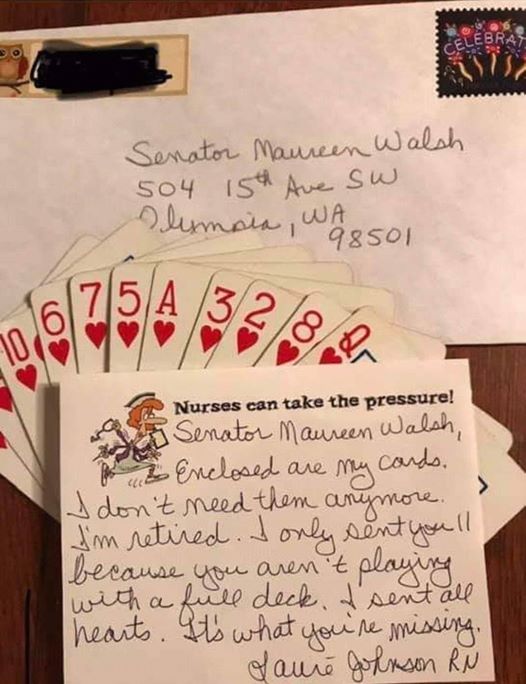 CELEBRAT
Senator Maureen Walsh
504 15th Ave SW
Olympia, WA
98501
10 6 7 5 A 3 2 8 Q
Nurses can take the pressure!
Senator Maureen Walsh,
Enclosed are my cards.
I don't need them anymore.
I'm retired. I only sent you 11
because you aren't playing
with a full deck. I sent all
hearts. It's what you're missing.
Laurie Johnson RN